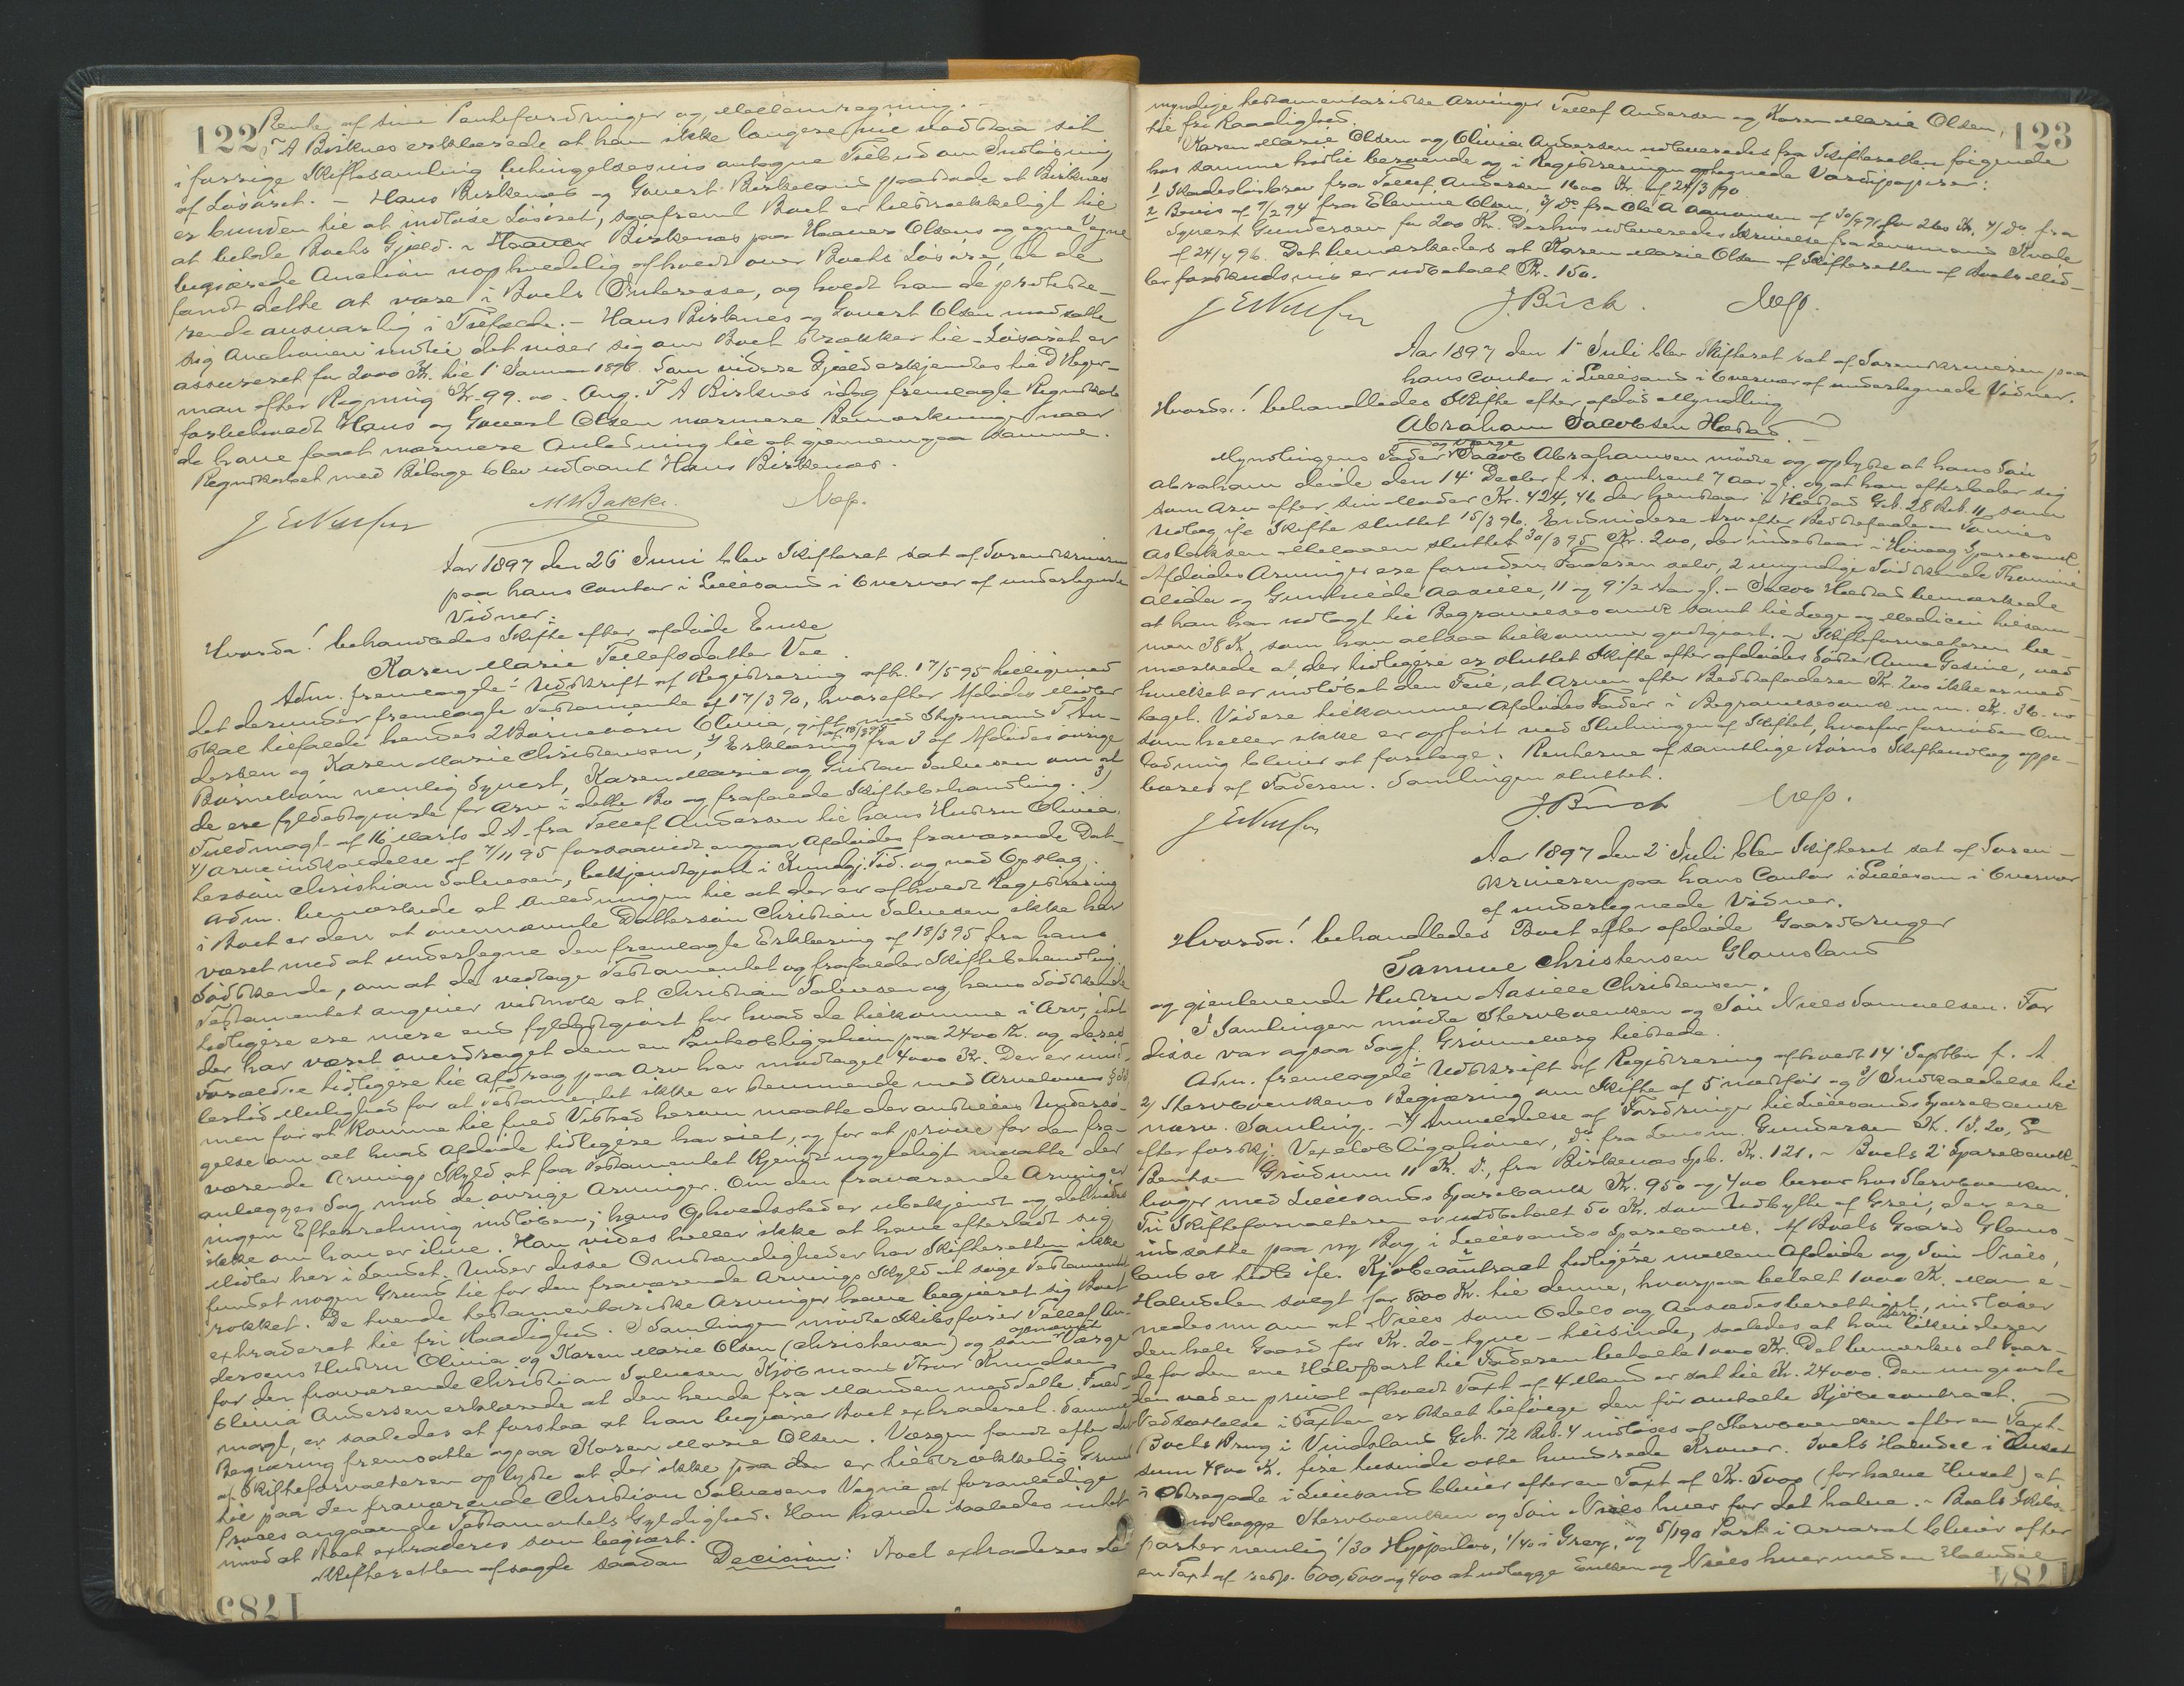 122
Rente af sine Pantefordringer og Mellemregning.
T A Birknes erklærede at han ikke længere vil vedstaa sit
i forrige Skiftesamling betingelsesvis antagne Tilbud om Indløsning
af Løsøret. – Hans Birkenes og Govert Birkeland paastode at Birknes
er bunden til at indløse Løsøret, saafremt Boet er tilstrækkeligt til
at betale Boets Gjæld. Birkenes paa Haaver Olsens og egne Vegne
begjærede Auction uopholdelig afholdt over Boets Løsøre, da de
fandt dette at være i Boets Interesse, og holdt han de proteste-
rende ansvarlig i Tilfælde. – Hans Birknes og Govert Olsen modsatte
sig Auctionen indtil det viser sig om Boet strækker til. – Løsøret er
assureret for 2000 Kr. til 1 Januar 1898. Som videre Gjæld erkjendtes til D Heger-
man efter Regning Kr. 99.00. Ang. T A Birknes idag fremlagte Regnskab
forbeholdt Hans og Govert Olsen nærmere Bemærkninger naar
de have faaet nærmere Anledning til at gjennemgaa samme.
Regnskabet med Bilage blev udlaant Hans Birkenes.
M Bakke. Nep.
Aar 1897 den 26 Juni blev Skifteret sat af Sorenskriveren
paa hans Contor i Lillesand i Overvær af undertegnede
Vidner:
Hvorda! behandledes Skifte efter afdøde Enke
Karen Marie Tellefsdatter Vee.
Adm. fremlagde: Udskrift af Registrering afh. 17/5 95 tilligemed
det derunder fremlagte Testamente af 17/3 90, hvorefter Afdødes Midler
skal tilfalde hendes 2 Børnebørn Olivia, gift med Skipsmand T An-
dersen og Karen Marie Christensen, 2/ Erklæring af 18/3 95 fra 3 af Afdødes øvrige
Børnebørn nemlig Syvert, Karen Marie og Gustav Salvesen om at
de ere fyldestgjorte for Arv i dette Bo og frafalde Skiftebehandling. 3/
Fuldmagt af 16 Marts d A. fra Tellef Andersen til hans Hustru Olivia.
4) Arveindkaldelse af 7/11 95 forsaavidt angaar Afdødes fraværende Dat-
tersøn Christian Salvesen, bekjendtgjort i Kundgj. Tid. og ved Opslag.
Adm. bemærkede at Anledningen til at der er afholdt Registrering
i Boet er den at ovennævnte Dattersøn Christian Salvesen ikke har
været med at undertegne den fremlagte Erklæring af 18/3 95 fra hans
Sødskende, om at de vedtage Testamentet og frafalder Skiftebehandling.
Testamentet angiver vistnok at Christian Salvesen og hans Sødskende
tidligere ere mere end fyldestgjort for hvad de tilkomme i Arv, idet
der har været overdraget dem en Panteobligation paa 2400 Kr. og deres
Forældre tidligere til Afdrag paa Arv har modtaget 4000 Kr. Der er imid-
lertid Mulighed for at Testamentet ikke er stemmende med Arveloven
men for at komme til fuld Vished herom maatte der anstilles Undersø-
gelse om alt hvad Afdøde tidligere har eiet, og for at prøve for den fra-
værende Arvings Skyld at faa Testamentet kjendt ugyldigt maatte der
anlægges Sag mod de øvrige Arvinger. Om den fraværende Arving er
ingen Efterretning indløben; hans Opholdssted er ubekjendt og det vides
ikke om han er ilive. Han vides heller ikke at have efterladt sig
Midler her i Landet. Under disse Omstændigheder har Skifteretten ikke
fundet nogen Grund til for den fraværende Arvings Skyld at søge Testamentet
rokket. De tvende testamentariske Arvinger have begjæret sig Boet
extraderet til fri Raadighed. I Samlingen mødte Skibsfører Tellef An-
dersens Hustru Olivia og Karen Marie Olsen (Christensen) og som opnævnt Værge
for den fraværende Christian Salvesen Kjøbmand Thor Knudsen.
Olivia Andersen erklærede at den hende fra Manden meddelte Fuld-
magt, er saaledes at forstaa at han begjærer Boet extraderet. Samme
Begjæring fremsatte ogsaa Karen Marie Olsen. Værgen fandt efter det
af Skifteforvalteren oplyste at der ikke er tilstrækkelig Grund
til paa den fraværende Christian Salvesens Vegne at foranledige
Proces angaaende Testamentets Gyldighed. Han havde saaledes intet
imod at Boet extraderes som begjært.
Skifteretten afsagde saadan Decision: Boet extraderes de
1785
123
myndige testamentariske Arvinger Tellef Andersen og Karen Marie Olsen,
til fri Raadighed.
Karen Marie Olsen og Olivia Andersen udleveredes fra Skifteretten følgende
hos samme hidtil beroende og i Registreringen optegnede Værdipapirer:
1 Skadesløsbrev fra Tellef Andersen 1600 Kr. af 24/3 90.
2 Bevis af 7/2 94 fra Elenine Olsen, 3/ Do fra Ole A Aanonsen af 30/9 91 for 260 Kr. 4/ Do fra
Syvert Gundersen for 200 Kr. Derhos udleveredes Skrivelse fra Lensmand Kvale
af 24/4 96. Det bemærkedes at Karen Marie Olsen af Skifteretten af Boets Mid-
ler forskudsvis er udbetalt Kr. 150.
J. Büch. Nep.
Aar 1897 den 1 Juli blev Skifteret sat af Sorenskriveren paa
hans Contor i Lillesand i Overvær af undertegnede Vidner.
Hvorda! behandledes Skifte efter afdød Myndling
Abraham Jacobsen Hæstad.
Myndlingens Fader og Værge Jacob Abrahamsen mødte og oplyste at hans Søn
Abraham døde den 14 Decbr f. A. omtrent 7 Aar gl. og at han efterlader sig
som Arv efter sin Moder Kr. 424,46 der henstaar i Hæstad Gb. 28 Bb. 11 som
Udlæg ifø Skifte sluttet 15/3 96. Endvidere Arv efter Bedstefaderen Tønnes
Aslaksen Melaaen sluttet 30/3 95 Kr. 200, der indestaar i Høvaag Sparebank.
Afdødes Arvinger ere foruden Faderen selv, 2 umyndige Sødskende Thomine
Alida og Gunhilde Aasille, 11 og 9 1/2 Aar gl. – Jacob Hæstad bemærkede
at han har udlagt til Begravelsesomk. samt til Læge og Medicin tilsam-
men 38 Kr. som han altsaa tilkommer godtgjort. – Skifteforvalteren be-
mærkede at der tidligere er sluttet Skifte efter afdødes Søster Anne Gesine, ved
hvilket er indløbet den Feil, at Arven efter Bedstefaderen Kr. 200 ikke er med-
taget. Videre tilkommer Afdødes Fader i Begravelsesomk. m.m. Kr. 36.00
som heller ikke er opført ved Slutningen af Skiftet, hvorfor fornøden Om-
lodning bliver at foretage. Renterne af samtlige Børns Skifteudlæg oppe-
bæres af Faderen. Samlingen sluttet.
J. Büch Nep.
Aar 1897 den 2 Juli blev Skifteret sat af Soren-
skriveren paa hans Contor i Lillesan i Overvær
af undertegnede Vidner.
Hvorda! behandledes Boet efter afdøde Gaardbruger
Samuel Christensen Glamsland
og gjenlevende Hustru Aasille Christensen.
I Samlingen mødte Stervboenken og Søn Niels Samuelsen. For
disse var ogsaa Sagf. Grønneberg tilstede.
Adm. fremlagde: Udskrift af Registrering afholdt 14 Septbr f. A.
2/ Stervboenkens Begjæring om Skifte af 5 næstfør og 3/ Indkaldelse til
nærv. Samling. – 4/ Anmeldelse af Fordringer til Lillesands Sparebank
efter forskj. Vexelobligationer, Do fra Lensm. Gundersen Kr. 18.20,
Bentsen Grødum 11 Kr. D., fra Birkenes Spb. Kr. 121. – Boets 2 Sparebank-
bøger med Lillesands Sparebank Kr. 950 og 400 beror hos Stervboenken.
Til Skifteforvalteren er indbetalt 50 Kr. som Udbytte af Grei, der ere
indsatte paa ny Bog i Lillesands Sparebank. Af Boets Gaard Glams-
land er dels ifø. Kjøbecontract tidligere mellem Afdøde og Søn Niels,
Halvdelen solgt for 8500 Kr. til denne, hvorpaa betalt 1000 Kr. Man e-
nedes nu om at Niels som Odels og Aasædesberettiget, indløser
den hele Gaard for Kr. 20 – tyve – tusinde, saaledes at han
de for den ene Halvpart til Faderen betalte 1000 Kr. Det bemærkes at Gaar-
den ved en privat afholdt Taxt af 4 Mænd er sat til Kr. 24000. Den ungjorte
Nedsættelse i Taxten er skeet tilfølge den før omtalte Kjøbecontract.
Boets Brug i Vindsland Gb. 72 Bb. 4 indløses af Stervboenken efter en Taxt-
sum 4800 Kr. fire tusinde otte hundrede Kroner. Boets Halvdel i Huset
i Østregade i Lillesand bliver efter en Taxt af Kr. 5000 (for halve Huset) at
udlægge Stervboenken og Søn Niels hver for det halve. – Boets Skibs-
parter nemlig 1/30 Hypatia, 1/40 i Grey, og 5/190 Part i Ararat bliver efter
en Taxt af resp. 600, 500 og 400 at udlægge Enken og Niels hver med en Halvdel
1784